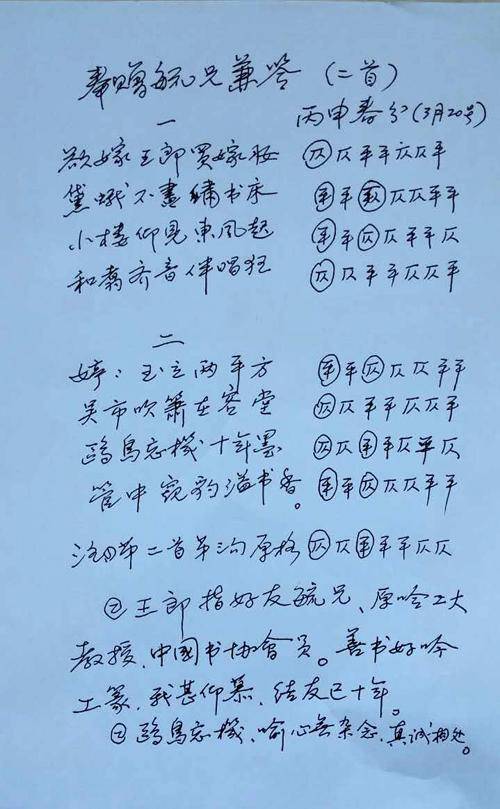 奉贈毓兄兼答（二首）
一 丙申春分（3月20号）
欲嫁王郎買嫁妆 仄仄平平仄仄平
黛蛾不畫繡书床 平平仄仄仄平平
小楼仰見東風起 平平仄仄平平仄
和鸾齐音伴唱狂 仄仄平平仄仄平
二
婷：玉立两平方 平平仄仄仄平平
吴市吹箫在客堂 仄仄平平仄仄平
鷗鳥忘機十年墨 仄仄平平仄平仄
管中窥豹溢书香。 平平仄仄仄平平
注①第二首第3句原格 仄仄平平平仄仄
②王郎指好友毓兄、原哈工大
教授、中國书协會员。善书好吟
工篆，我甚仰慕，结友已十年。
②鷗鳥忘機，喻心無杂念，真诚相处。